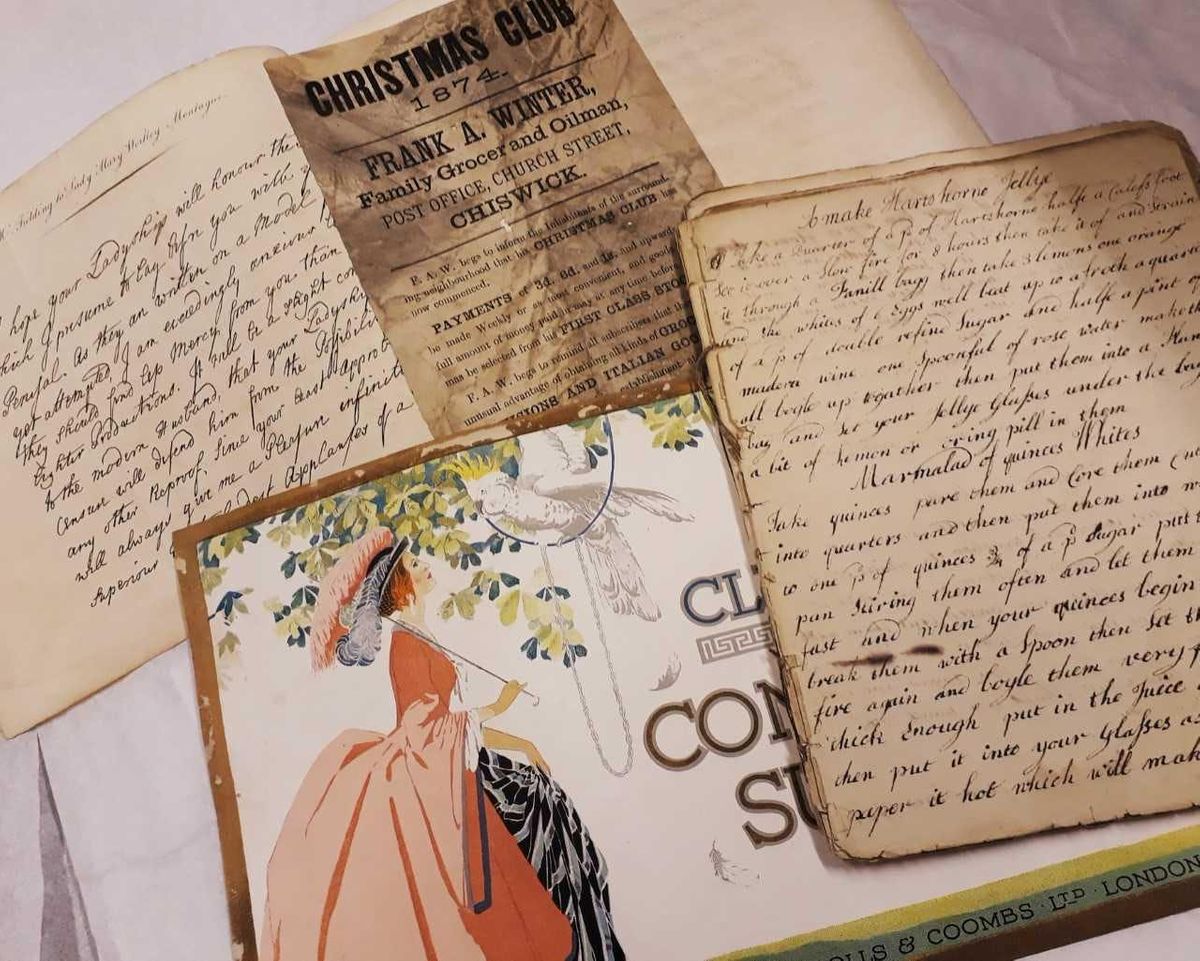 Fielding to Lady Mary Wortley Montague.
I hope your Ladyship will honour the
which I presume to lay before you with
Perusal. As they are written on a Model
yet attempted, I am exceedingly anxious
they should find less Mercy from you than
lighter Productions. It will be a slight
to the modern Husband, that your Ladyship
Censure will defend him from the Possibility
any other Reproof, Since your least Approb
will always give me a Pleasure infinite
superiour to the loudest Applauses of a
CHRISTMAS CLUB
1874.
FRANK A. WINTER,
Family Grocer and Oilman,
POST OFFICE, CHURCH STREET,
CHISWICK.
F. A. W. begs to inform the Inhabitants of the surround-
ing neighbourhood that his CHRISTMAS CLUB has
now commenced.
PAYMENTS of 3d. 6d. and 1s. and upward
be made Weekly or as most convenient, and goods
full amount of money paid in may at any time before
may be selected from his FIRST CLASS STO
F. A. W. begs to remind all subscribers that
unusual advantage of obtaining all kinds of GRO
ISIONS AND ITALIAN GOO
establishment
To make Hartshorne Jellye
Take a Quarter of a p of Hartshorne halfe a Calefs foot
set it over a slow fire for 8 hours then take it of and strain
it through a Fanill bagg then take 3 lemons one orange
and the whites of 6 Eggs well beat up to a froth a quarter
of a p of double refine Sugar and halfe a pint of
madera wine one spoonful of rose water make
all boyle up together then put them into a flan
bag and set your Jellye Glasses under the bag
a bit of lemon or oring pill in them
Marmalad of quinces Whites
Take quinces pare them and Core them cut
into quarters and then put them into
to one p of quinces ¾ of a p sugar put
pan stiring them often and let them
fast and when your quinces begin
break them with a Spoon then set th
fire again and boyle them very f
thick Enough put in the Juice
then put it into your Glasses as
paper it hot which will mak
CL
CON
SU
OLLS & COOMBS · LTD · LONDON